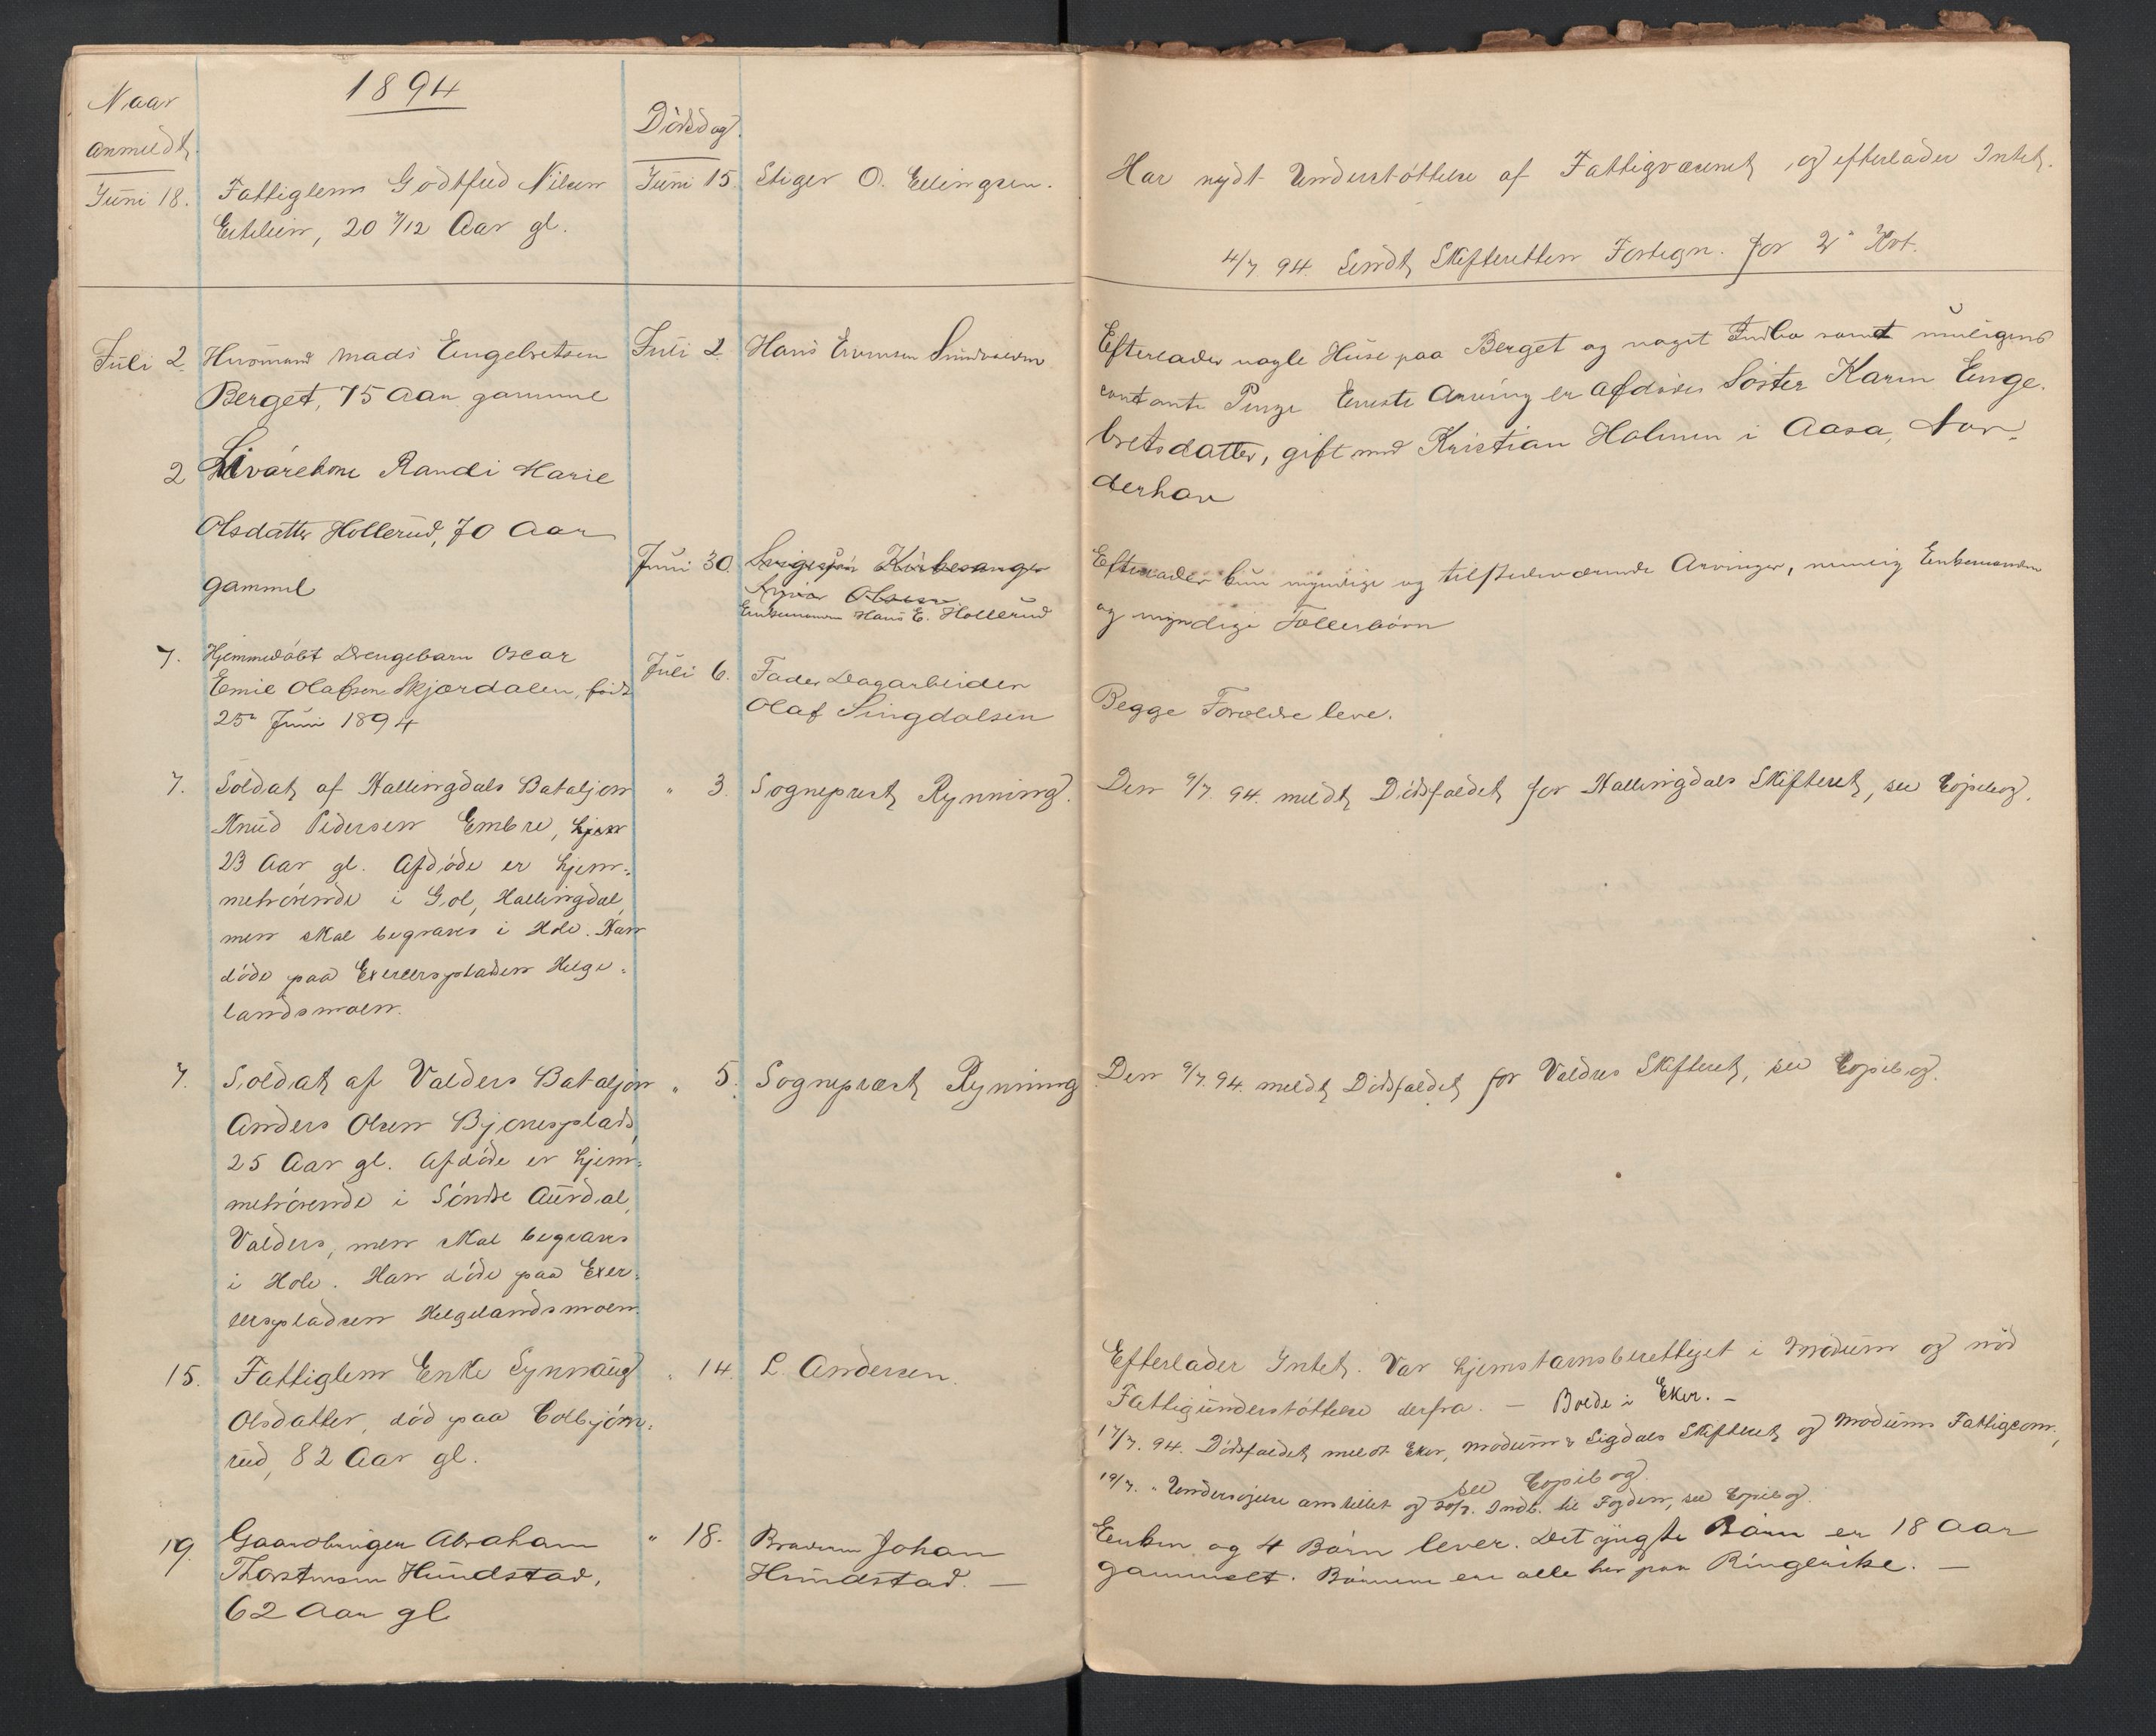 Naar
anmeldt.
1894
Dödsdag.
Juni 18. Fattiglem Godtfred Nilsen
20 7/12 Aar gl.
Juni 15. Steiger O. Ellingsen.
Har nydt Understöttelse af Fattigvæsenet, og efterlader Intet.
4/7 94. Sendt Skifteretten Fortegn. for 2det Kvt.
Juli 2 Husmand Mads Engebretsen
Berget, 75 Aar gammel
Juli 2 Hans
Efterlader nogle Huse paa Berget og noget Indbo samt muligens
contante Penge Eneste Arving er Afdödes Söster Karen Enge-
bretsdatter, gift med Kristian Holmen i Aasa, Nor-
derhov
2 Livörekone Randi Marie
Olsdatter Hollerud, 70 Aar
gammel
Juni 30. Kirkesanger
Olsen
Enkemanden Hans E. Hollerud
Efterlader kun myndige og tilstedeværende Arvinger, nemlig Enkemanden
og myndige Fællesbörn
7. Hjemmedöbt Drengebarn Oscar
Emil Olafsen Skjærdalen, födt
25de Juni 1894
Juli 6. Fader Dagarbeider
Olaf Singdalsen
Begge Forældre leve.
7. Soldat af Hallingdals Bataljon
Knud Pedersen Embre,
23 Aar gl. Afdöde er hjem-
mehörende i Gol, Hallingdal,
men skal begraves i Hole. Han
döde paa Exercerpladsen Helge-
landsmoen.
" 3. Sogneprest Rynning.
Den 9/7. 94. meldt Dödsfaldet for Hallingdals Skifteret, see Copibog.
7. Soldat af Valders Bataljon
Anders Olsen Bjonesplads,
25 Aar gl. Afdöde er hjem-
mehörende i Söndre Aurdal,
Valders, men skal begraves
i Hole. Han döde paa Exer-
cerpladsen Helgelandsmoen.
" 5. Sogneprest Rynning
Den 9/7. 94. meldt Dödsfaldet for Valdres Skifteret, see Copibog.
15. Fattiglem Enke Synnaug
Olsdatter, död paa Colbjörn-
rud, 82 Aar gl.
" 14. L. Andersen.
Efterlader Intet. Var hjemstavnsberettiget i Modum og nöd
Fattigunderstöttelse derfra. – Boede i Eker. –
17/7. 94. Dödsfaldet meldt Eker, Modum & Sigdals Skifteret og Modums Fattigcom.,
see Copibog.
19/7. " Undersögelse anstillet og 20/7. Indb. til Fogden, see Copibog.
19. Gaardbruger Abraham
Thorstensen Hundstad,
62 Aar gl
" 18. Broderen Johan
Hundstad. –
Enken og 4 Börn lever. Det yngste Barn er 18 Aar
gammelt. Börnene ere alle her paa Ringerike. –